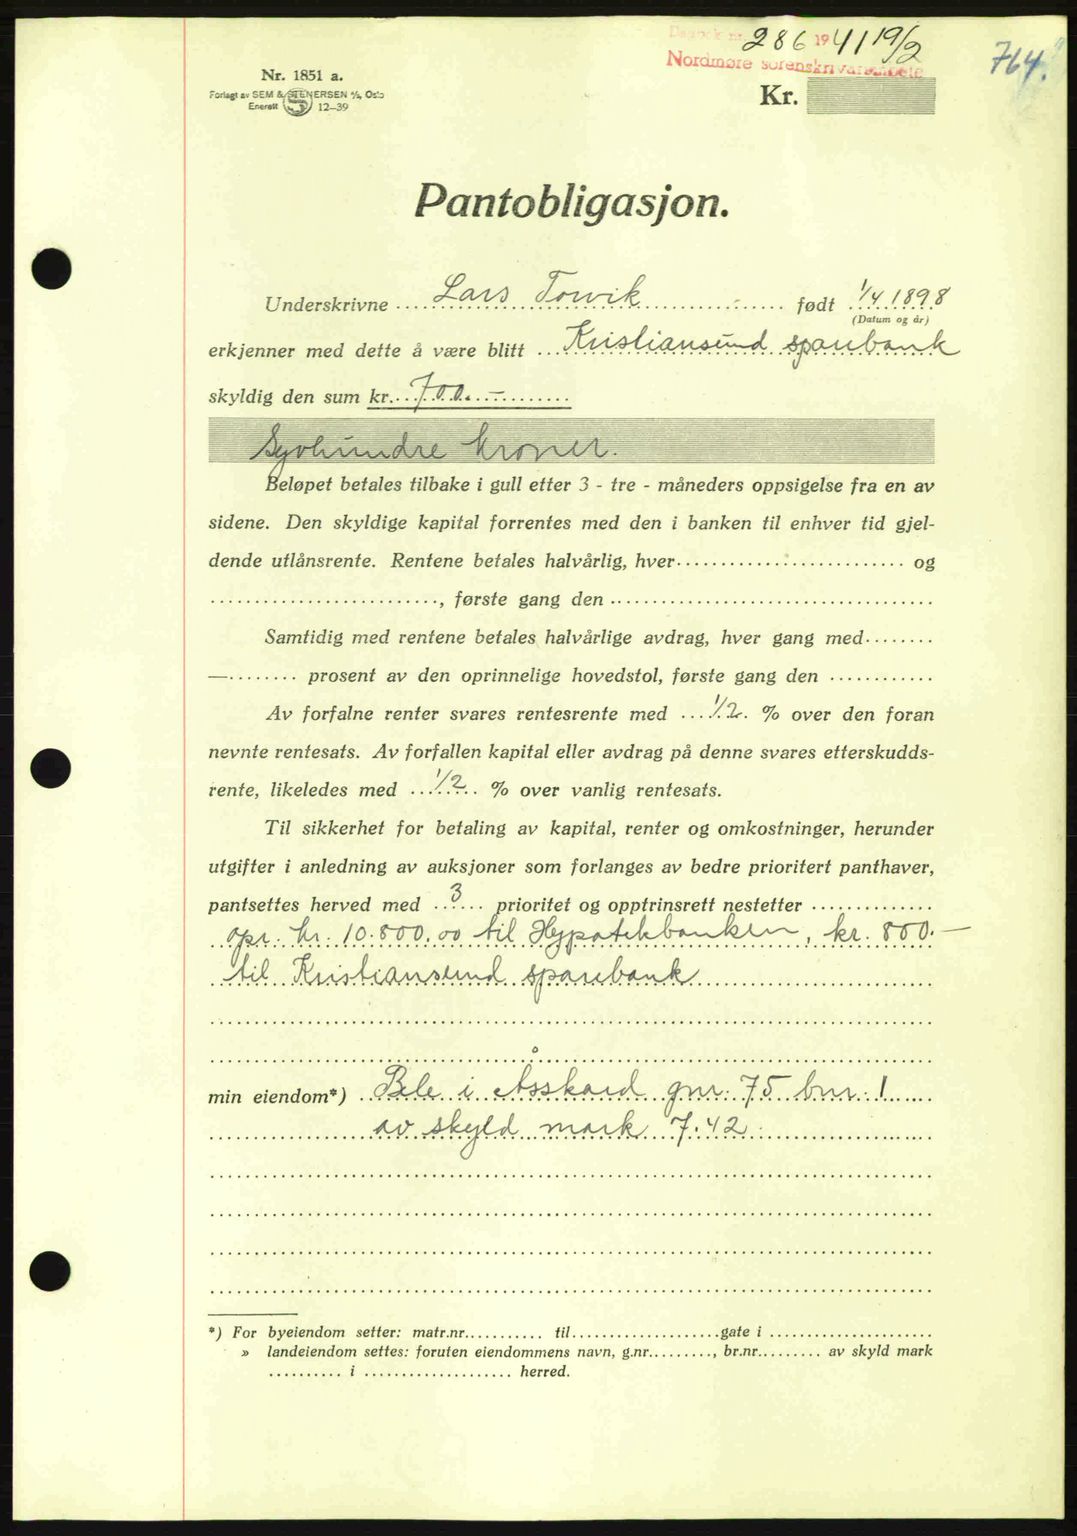 Dagbok nr. 286 1941 19/2
Nordmøre sorenskriverembete
764.
Nr. 1851 a.
Forlagt av SEM & STENERSEN A/S, Oslo
Enerett S 12-39
Kr.
Pantobligasjon.
Underskrivne Lars Torvik født 1/4 1898
(Datum og år)
erkjenner med dette å være blitt Kristiansund sparebank
skyldig den sum kr. 700.-
Syvhundre kroner.
Beløpet betales tilbake i gull etter 3 - tre - måneders oppsigelse fra en av
sidene. Den skyldige kapital forrentes med den i banken til enhver tid gjel-
dende utlånsrente. Rentene betales halvårlig, hver og
, første gang den
Samtidig med rentene betales halvårlige avdrag, hver gang med
— prosent av den oprinnelige hovedstol, første gang den
Av forfalne renter svares rentesrente med 1/2 % over den foran
nevnte rentesats. Av forfallen kapital eller avdrag på denne svares etterskudds-
rente, likeledes med 1/2 % over vanlig rentesats.
Til sikkerhet for betaling av kapital, renter og omkostninger, herunder
utgifter i anledning av auksjoner som forlanges av bedre prioritert panthaver,
pantsettes herved med 3 prioritet og opptrinsrett nestetter
opr. kr. 10.800,00 til Hypotekbanken, kr. 800.—
til Kristiansund sparebank
min eiendom*) Bele i Åsskard gnr. 75 bnr. 1
av skyld mark 7.42
*) For byeiendom setter: matr.nr. til gate i
» landeiendom settes: foruten eiendommens navn, g.nr. , br.nr. av skyld mark
i herred.